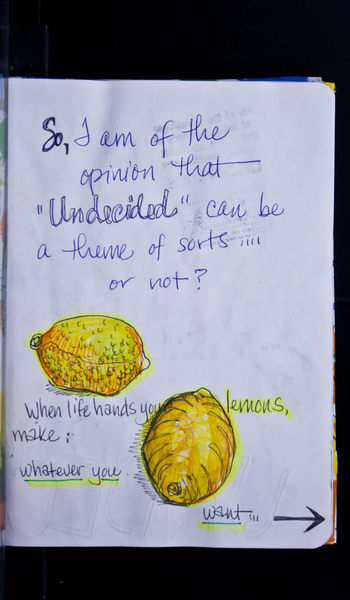 So, I am of the
opinion that
"Undecided" can be
a theme of sorts ....
or not?
When life hands you lemons,
make:
whatever you
want...